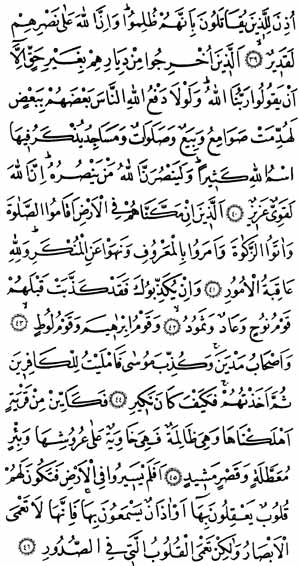 اُذِنَ لِلَّذِينَ يُقَاتَلُونَ بِاَنَّهُمْ ظُلِمُواۜ وَاِنَّ اللهَ عَلَى نَصْرِهِمْ
لَقَدِيرٌۙ ﴿٣٩﴾ اَلَّذِينَ اُخْرِجُوا مِنْ دِيَارِهِمْ بِغَيْرِ حَقٍّ اِلَّا
اَنْ يَقُولُوا رَبُّنَا اللهُۜ وَلَوْلَا دَفْعُ اللهِ النَّاسَ بَعْضَهُمْ بِبَعْضٍ
لَهُدِّمَتْ صَوَامِعُ وَبِيَعٌ وَصَلَوَاتٌ وَمَسَاجِدُ يُذْكَرُ فِيهَا
اسْمُ اللهِ كَثِيرًاۜ وَلَيَنْصُرَنَّ اللهُ مَنْ يَنْصُرُهُۜ اِنَّ اللهَ
لَقَوِيٌّ عَزِيزٌ ﴿٤٠﴾ اَلَّذِينَ اِنْ مَكَّنَّاهُمْ فِي الْاَرْضِ اَقَامُوا الصَّلٰوةَ
وَاٰتَوُا الزَّكٰوةَ وَاَمَرُوا بِالْمَعْرُوفِ وَنَهَوْا عَنِ الْمُنْكَرِۜ وَلِلهِ
عَاقِبَةُ الْاُمُورِ ﴿٤١﴾ وَاِنْ يُكَذِّبُوكَ فَقَدْ كَذَّبَتْ قَبْلَهُمْ
قَوْمُ نُوحٍ وَعَادٌ وَثَمُودُۙ ﴿٤٢﴾ وَقَوْمُ اِبْرٰهِيمَ وَقَوْمُ لُوطٍۙ ﴿٤٣﴾
وَاَصْحَابُ مَدْيَنَۚ وَكُذِّبَ مُوسٰى فَاَمْلَيْتُ لِلْكَافِرِينَ
ثُمَّ اَخَذْتُهُمْۚ فَكَيْفَ كَانَ نَكِيرِ ﴿٤٤﴾ فَكَاَيِّنْ مِنْ قَرْيَةٍ
اَهْلَكْنَاهَا وَهِيَ ظَالِمَةٌ فَهِيَ خَاوِيَةٌ عَلَى عُرُوشِهَا وَبِئْرٍ
مُعَطَّلَةٍ وَقَصْرٍ مَشِيدٍ ﴿٤٥﴾ اَفَلَمْ يَسِيرُوا فِي الْاَرْضِ فَتَكُونَ لَهُمْ
قُلُوبٌ يَعْقِلُونَ بِهَا اَوْ اٰذَانٌ يَسْمَعُونَ بِهَاۚ فَاِنَّهَا لَا تَعْمَى
الْاَبْصَارُ وَلٰكِنْ تَعْمَى الْقُلُوبُ الَّتِي فِي الصُّدُورِ ﴿٤٦﴾